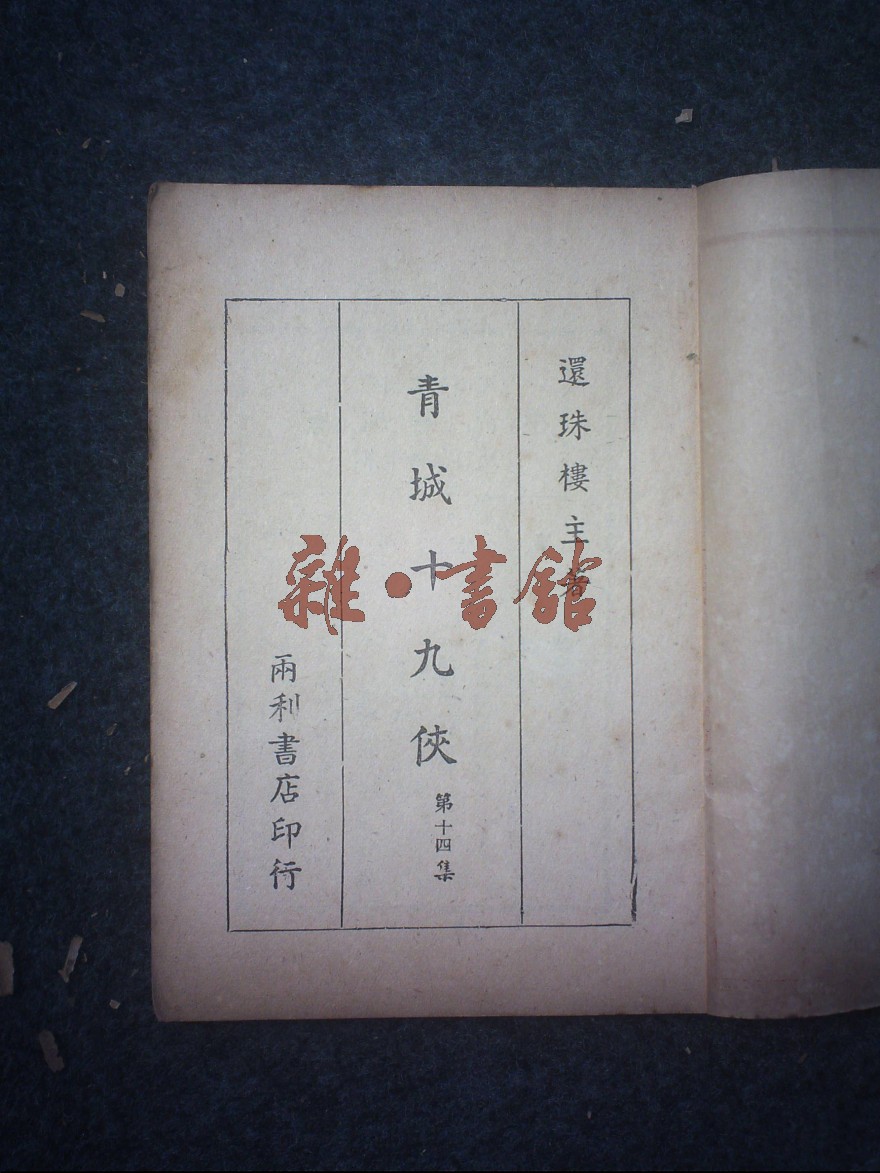 還珠樓主著
青城十九俠
第十四集
兩利書店印行
雜·書館